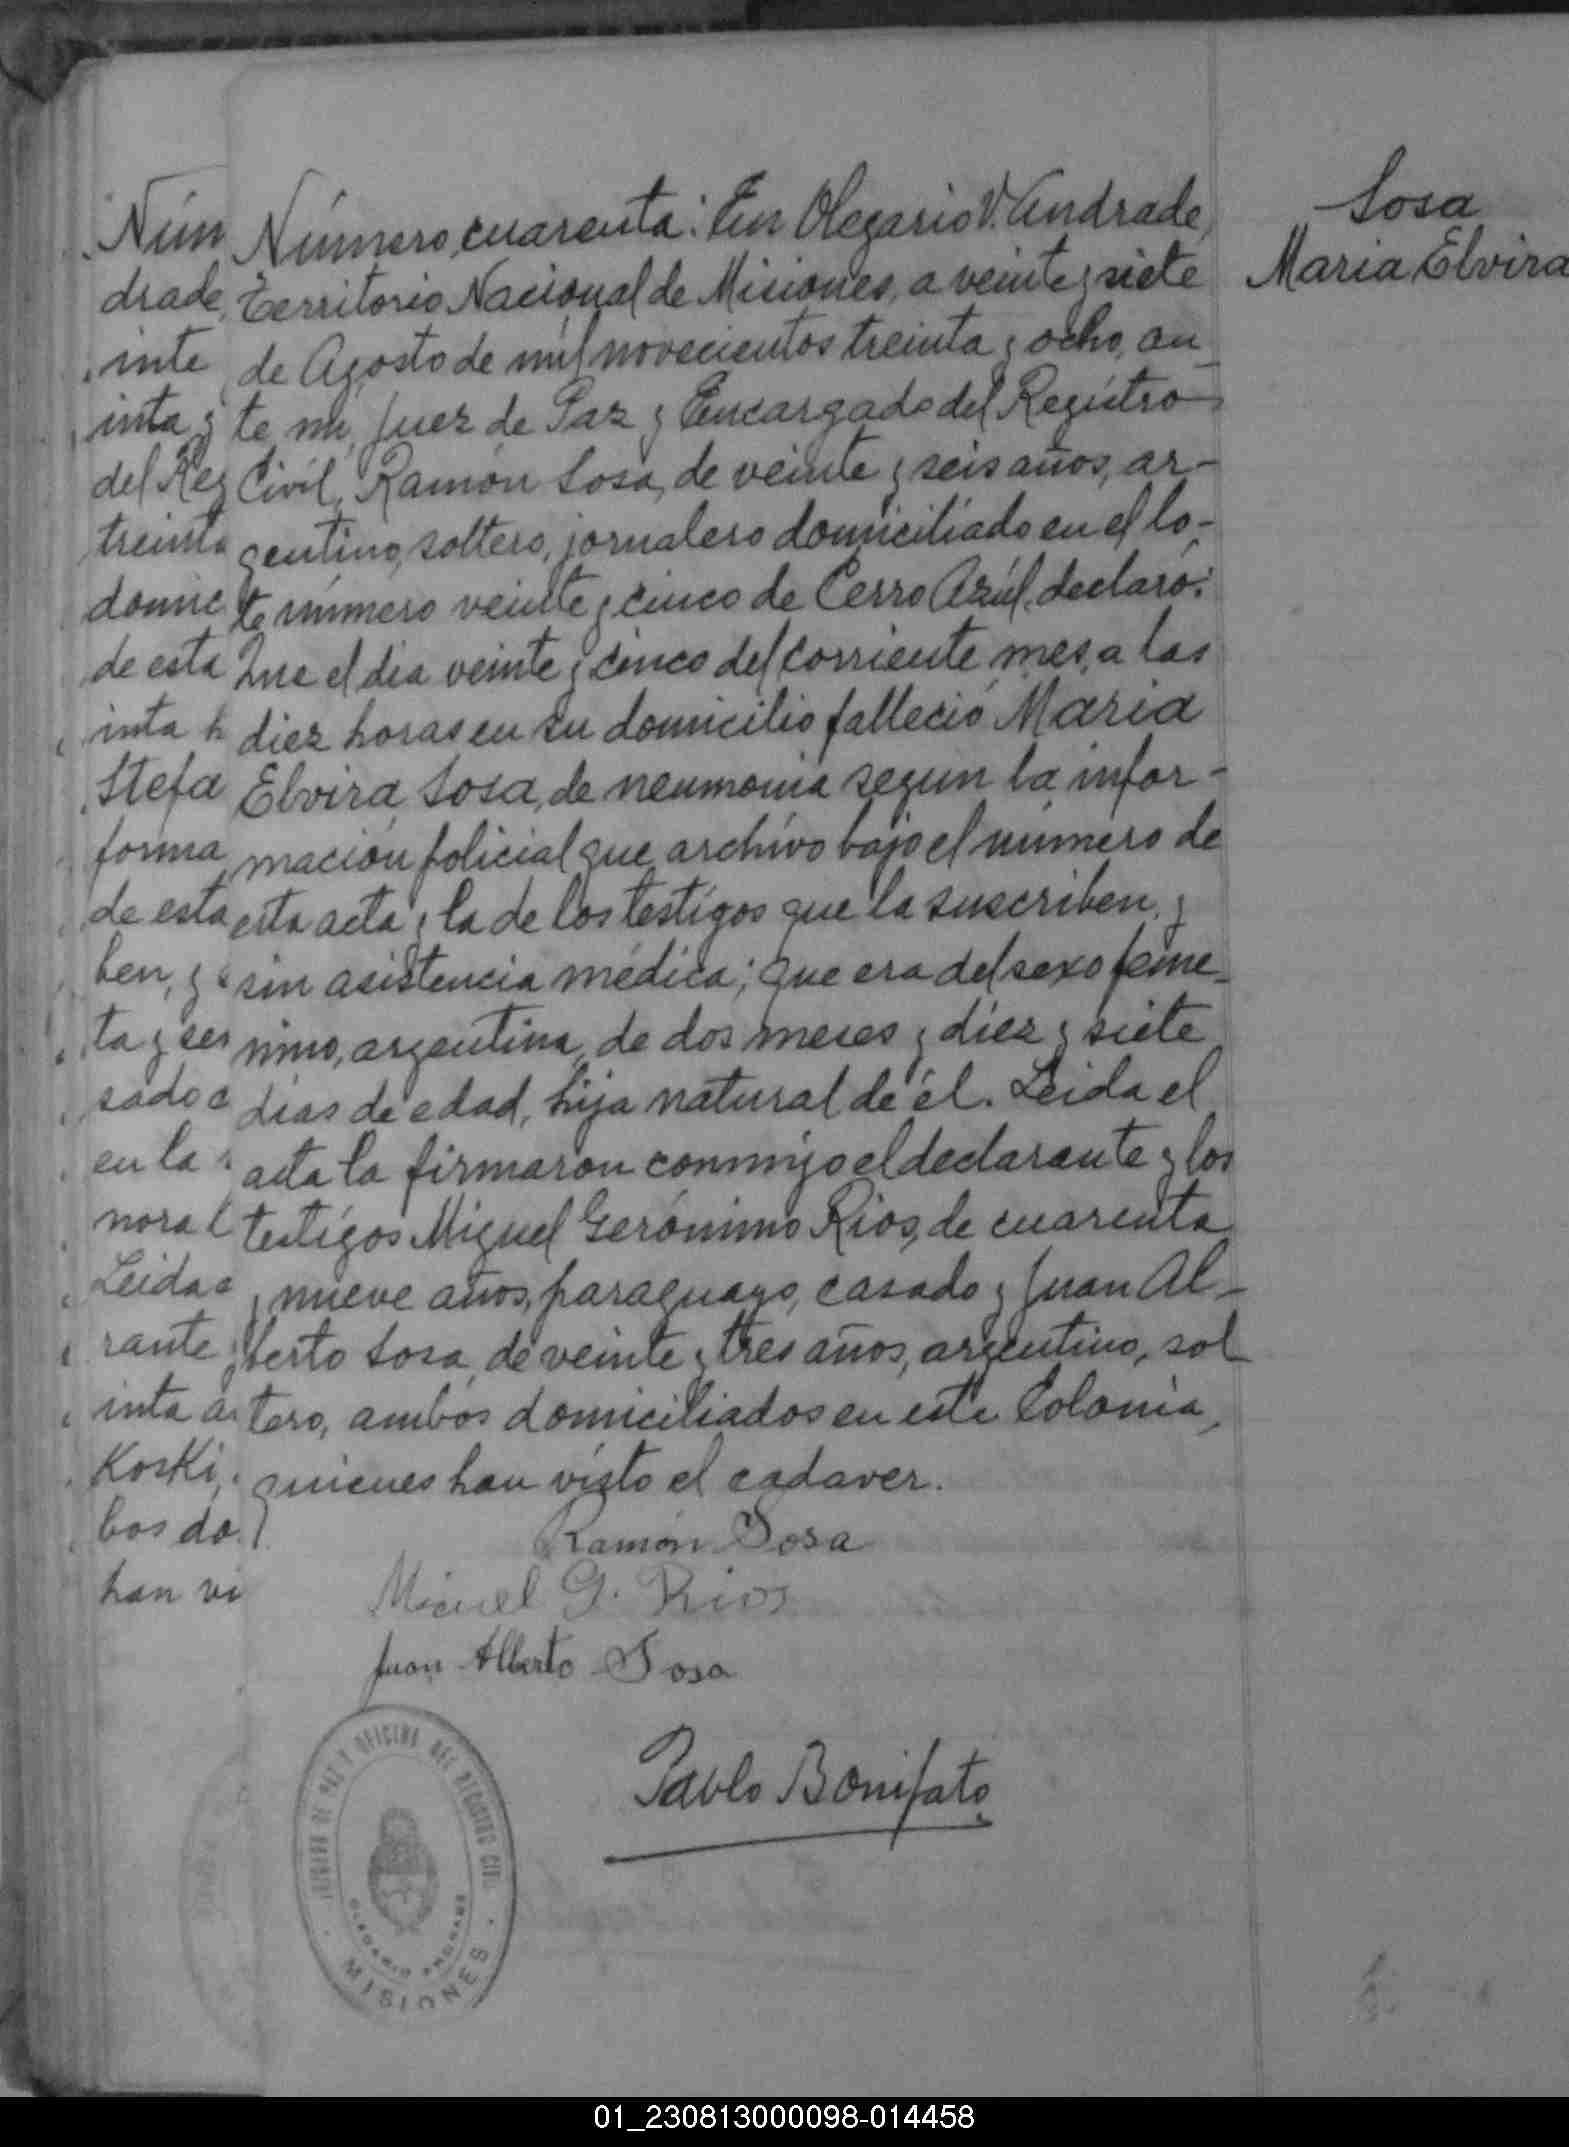 Sosa
Maria Elvira
Número cuarenta: En Olegario V. Andrade,
Territorio Nacional de Misiones, a veinte y siete
de Agosto de mil novecientos treinta y ocho, an-
te mi, Juez de Paz y Encargado del Registro
Civil, Ramón Sosa, de veinte y seis años, ar-
gentino, soltero, jornalero domiciliado en el lo-
te número veinte y cinco de Cerro Azúl, declaró:
Que el dia veinte y cinco del corriente mes, a las
diez horas en su domicilio falleció Maria
Elvira Sosa, de neumonia segun la infor-
mación policial que archivo bajo el número de
esta acta y la de los testigos que la suscriben, y
sin asistencia médica; que era del sexo feme-
nino, argentina, de dos meses y diez y siete
dias de edad, hija natural de él. Leida el
acta la firmaron conmigo el declarante y los
testigos Miguel Gerónimo Rios, de cuarenta
y nueve años, paraguayo, casado y Juan Al-
berto Sosa, de veinte y tres años, argentino, sol
tero, ambos domiciliados en esta Colonia,
quienes han visto el cadaver.
Ramón Sosa
Miguel G. Rios
Juan Alberto Sosa
Pablo Bonifato
JUZGADO DE PAZ Y OFICINA DEL REGISTRO CIVIL
OLEGARIO ANDRADE
MISIONES
Núm
drade,
inte
inta y
del Reg
treinta
domic
de esta
inta h
Stefa
forma
de esta
ben, y
ta y ser
sado
en la
nora
Leida
rante
inta
Koski,
bos do
han vi
01_230813000098-014458